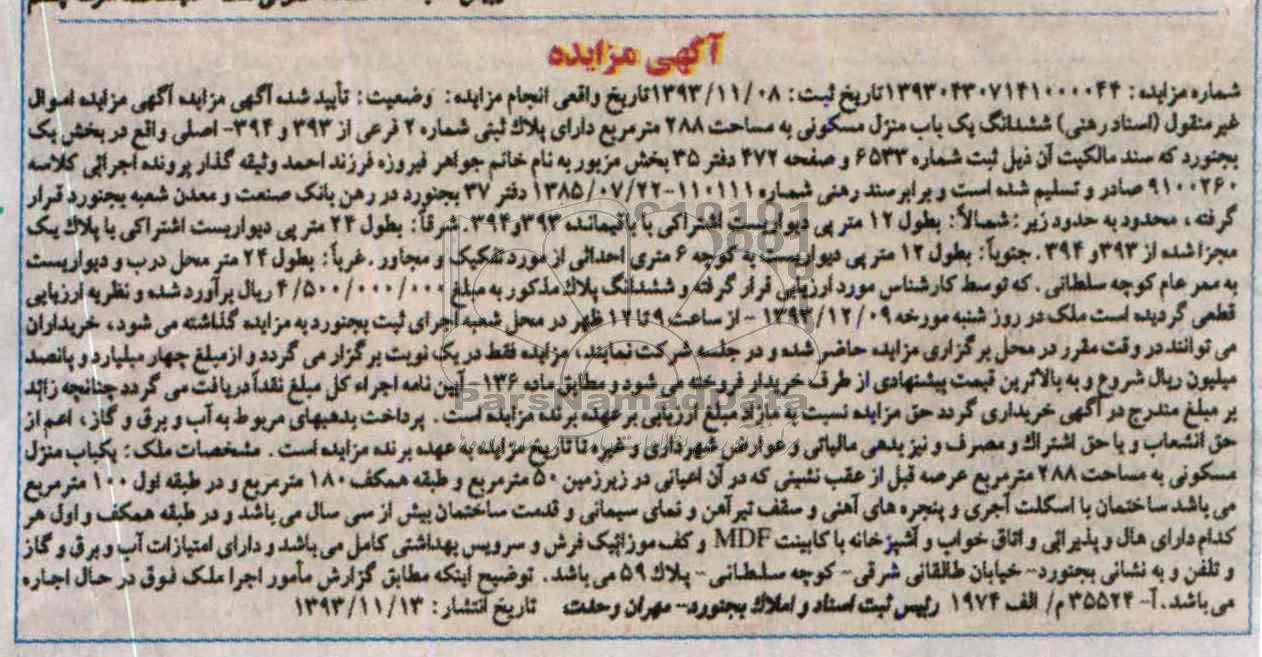 آگهی مزایده
شماره مزایده: ۱۳۹۳۰۴۳۰۷۱۴۱۰۰۰۰۴۴ تاریخ ثبت: ۱۳۹۳/۱۱/۰۸ تاریخ واقعی انجام مزایده: وضعیت: تأیید شده آگهی مزایده آگهی مزایده اموال
غیر منقول (اسناد رهنی) ششدانگ یک باب منزل مسکونی به مساحت ۲۸۸ مترمربع دارای پلاک ثبتی شماره ۲ فرعی از ۳۹۳ و ۳۹۴- اصلی واقع در بخش یک
بجنورد که سند مالکیت آن ذیل ثبت شماره ۶۵۳۳ و صفحه ۴۷۲ دفتر ۳۵ بخش مزبور به نام خانم جواهر فیروزه فرزند احمد وثیقه گذار پرونده اجرائی کلاسه
۹۱۰۰۲۶۰ صادر و تسلیم شده است و برابر سند رهنی شماره ۱۱۰۱۱۱-۱۳۸۵/۰۷/۲۲ دفتر ۳۷ بجنورد در رهن بانک صنعت و معدن شعبه بجنورد قرار
گرفته، محدود به حدود زیر: شمالاً: بطول ۱۲ متر پی دیواریست اشتراکی با باقیمانده ۳۹۳و۳۹۴. شرقاً: بطول ۲۴ متر پی دیواریست اشتراکی با پلاک یک
مجزا شده از ۳۹۳و ۳۹۴. جنوباً: بطول ۱۲ متر پی دیواریست به کوچه ۶ متری احداثی از مورد تفکیک و مجاور. غرباً: بطول ۲۴ متر محل درب و دیواریست
به ممر عام کوچه سلطانی. که توسط کارشناس مورد ارزیابی قرار گرفته و ششدانگ پلاک مذکور به مبلغ ۴/۵۰۰/۰۰۰/۰۰۰ ریال برآورد شده و نظریه ارزیابی
قطعی گردیده است ملک در روز شنبه مورخه ۱۳۹۳/۱۲/۰۹ - از ساعت ۹ تا ۱۲ ظهر در محل شعبه اجرای ثبت بجنورد به مزایده گذاشته می شود، خریداران
می توانند در وقت مقرر در محل برگزاری مزایده حاضر شده و در جلسه شرکت نمایند، مزایده فقط در یک نوبت برگزار می گردد و از مبلغ چهار میلیارد و پانصد
میلیون ریال شروع و به بالاترین قیمت پیشنهادی از طرف خریدار فروخته می شود و مطابق ماده ۱۳۶- آیین نامه اجراء کل مبلغ نقداً دریافت می گردد چنانچه زائد
بر مبلغ مندرج در آگهی خریداری گردد حق مزایده نسبت به مازاد مبلغ ارزیابی بر عهده برنده مزایده است. پرداخت بدهیهای مربوط به آب و برق و گاز، اعم از
حق انشعاب و یا حق اشتراک و مصرف و نیز بدهی مالیاتی و عوارض شهرداری و غیره تا تاریخ مزایده به عهده برنده مزایده است. مشخصات ملک: یکباب منزل
مسکونی به مساحت ۲۸۸ مترمربع عرصه قبل از عقب نشینی که در آن اعیانی در زیرزمین ۵۰ مترمربع و طبقه همکف ۱۸۰ مترمربع و در طبقه اول ۱۰۰ مترمربع
می باشد ساختمان با اسکلت آجری و پنجره های آهنی و سقف تیرآهن و نمای سیمانی و قدمت ساختمان بیش از سی سال می باشد و در طبقه همکف و اول هر
کدام دارای هال و پذیرائی و اتاق خواب و آشپزخانه با کابینت MDF و کف موزائیک فرش و سرویس بهداشتی کامل می باشد و دارای امتیازات آب و برق و گاز
و تلفن و به نشانی بجنورد- خیابان طالقانی شرقی- کوچه سلطانی- پلاک ۵۹ می باشد. توضیح اینکه مطابق گزارش مأمور اجرا ملک فوق در حال اجاره
می باشد. آ- ۳۵۵۲۴ م/ الف ۱۹۷۴ رئیس ثبت اسناد و املاک بجنورد- مهران وحدت تاریخ انتشار: ۱۳۹۳/۱۱/۱۳
ParsNamadData